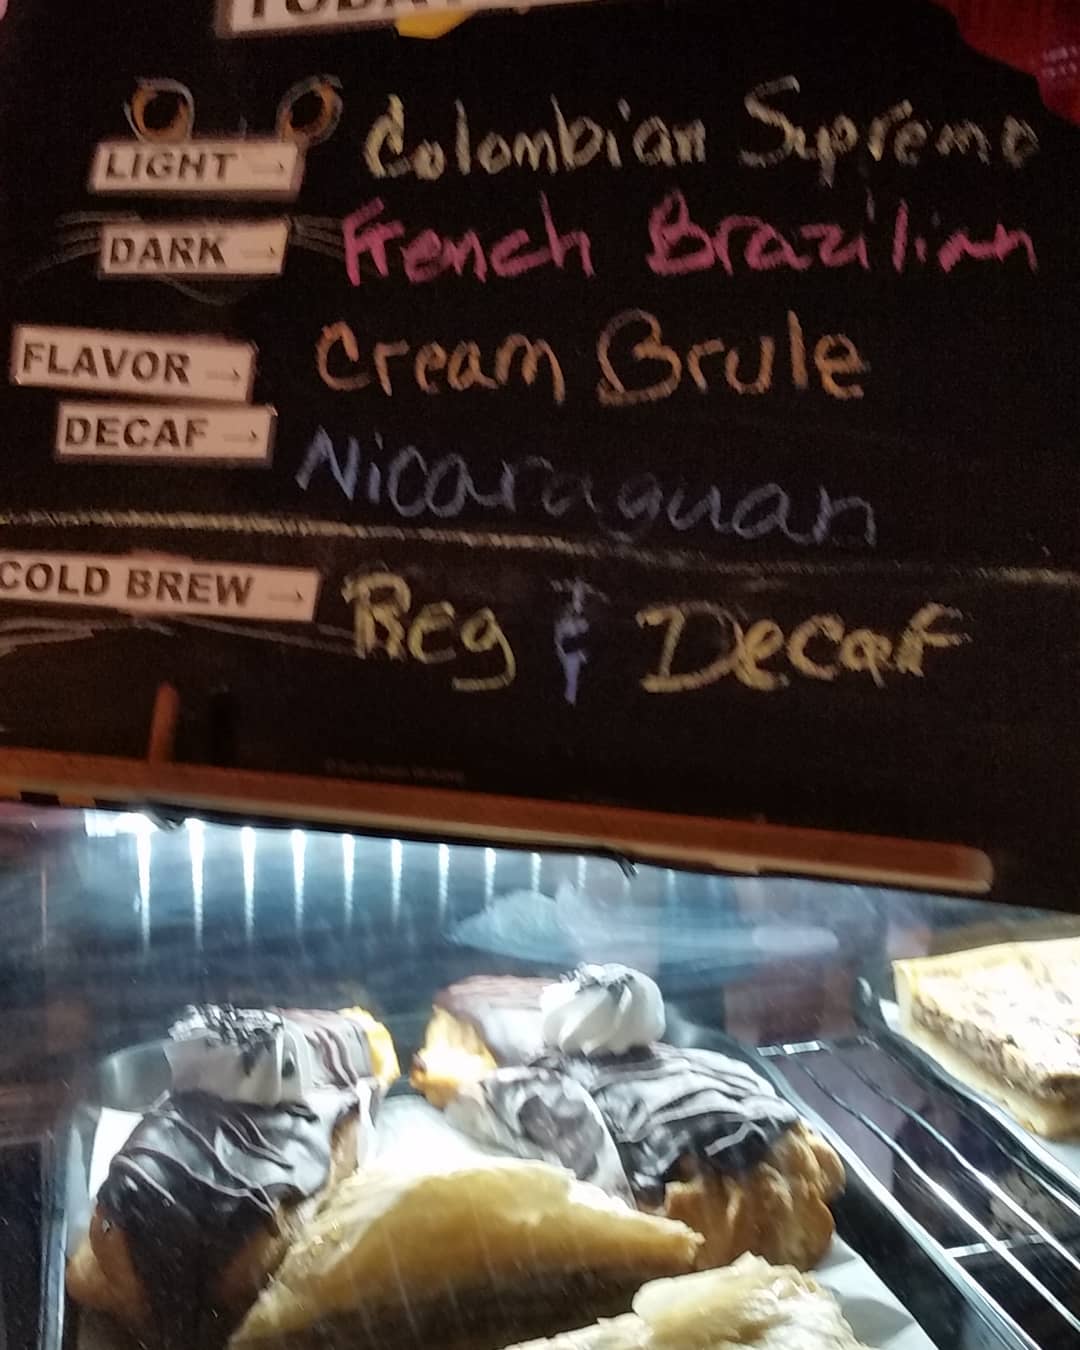 LIGHT → Colombian Supremo
DARK → French Brazilian
FLAVOR → Cream Brule
DECAF → Nicaraguan
COLD BREW → Reg & Decaf